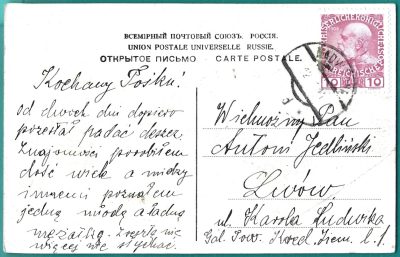 ВСЕМІРНЫЙ ПОЧТОВЫЙ СОЮЗЪ. РОССІЯ.
UNION POSTALE UNIVERSELLE RUSSIE.
ОТКРЫТОЕ ПИСЬМО CARTE POSTALE.
Kochany Tośku!
od dwóch dni dopiero
przestał padać deszcz.
Znajomości porobiłem
dość wiele a między
innemi poznałem
jedną młodą a ładną
mężatkę. Zresztą nic
więcej nie słychać.
Wielmożny Pan
Antoni Jedliński
Lwów
ul. Karola Ludwika
Gal. Tow. Kred. Ziem. l. 1.
10 10